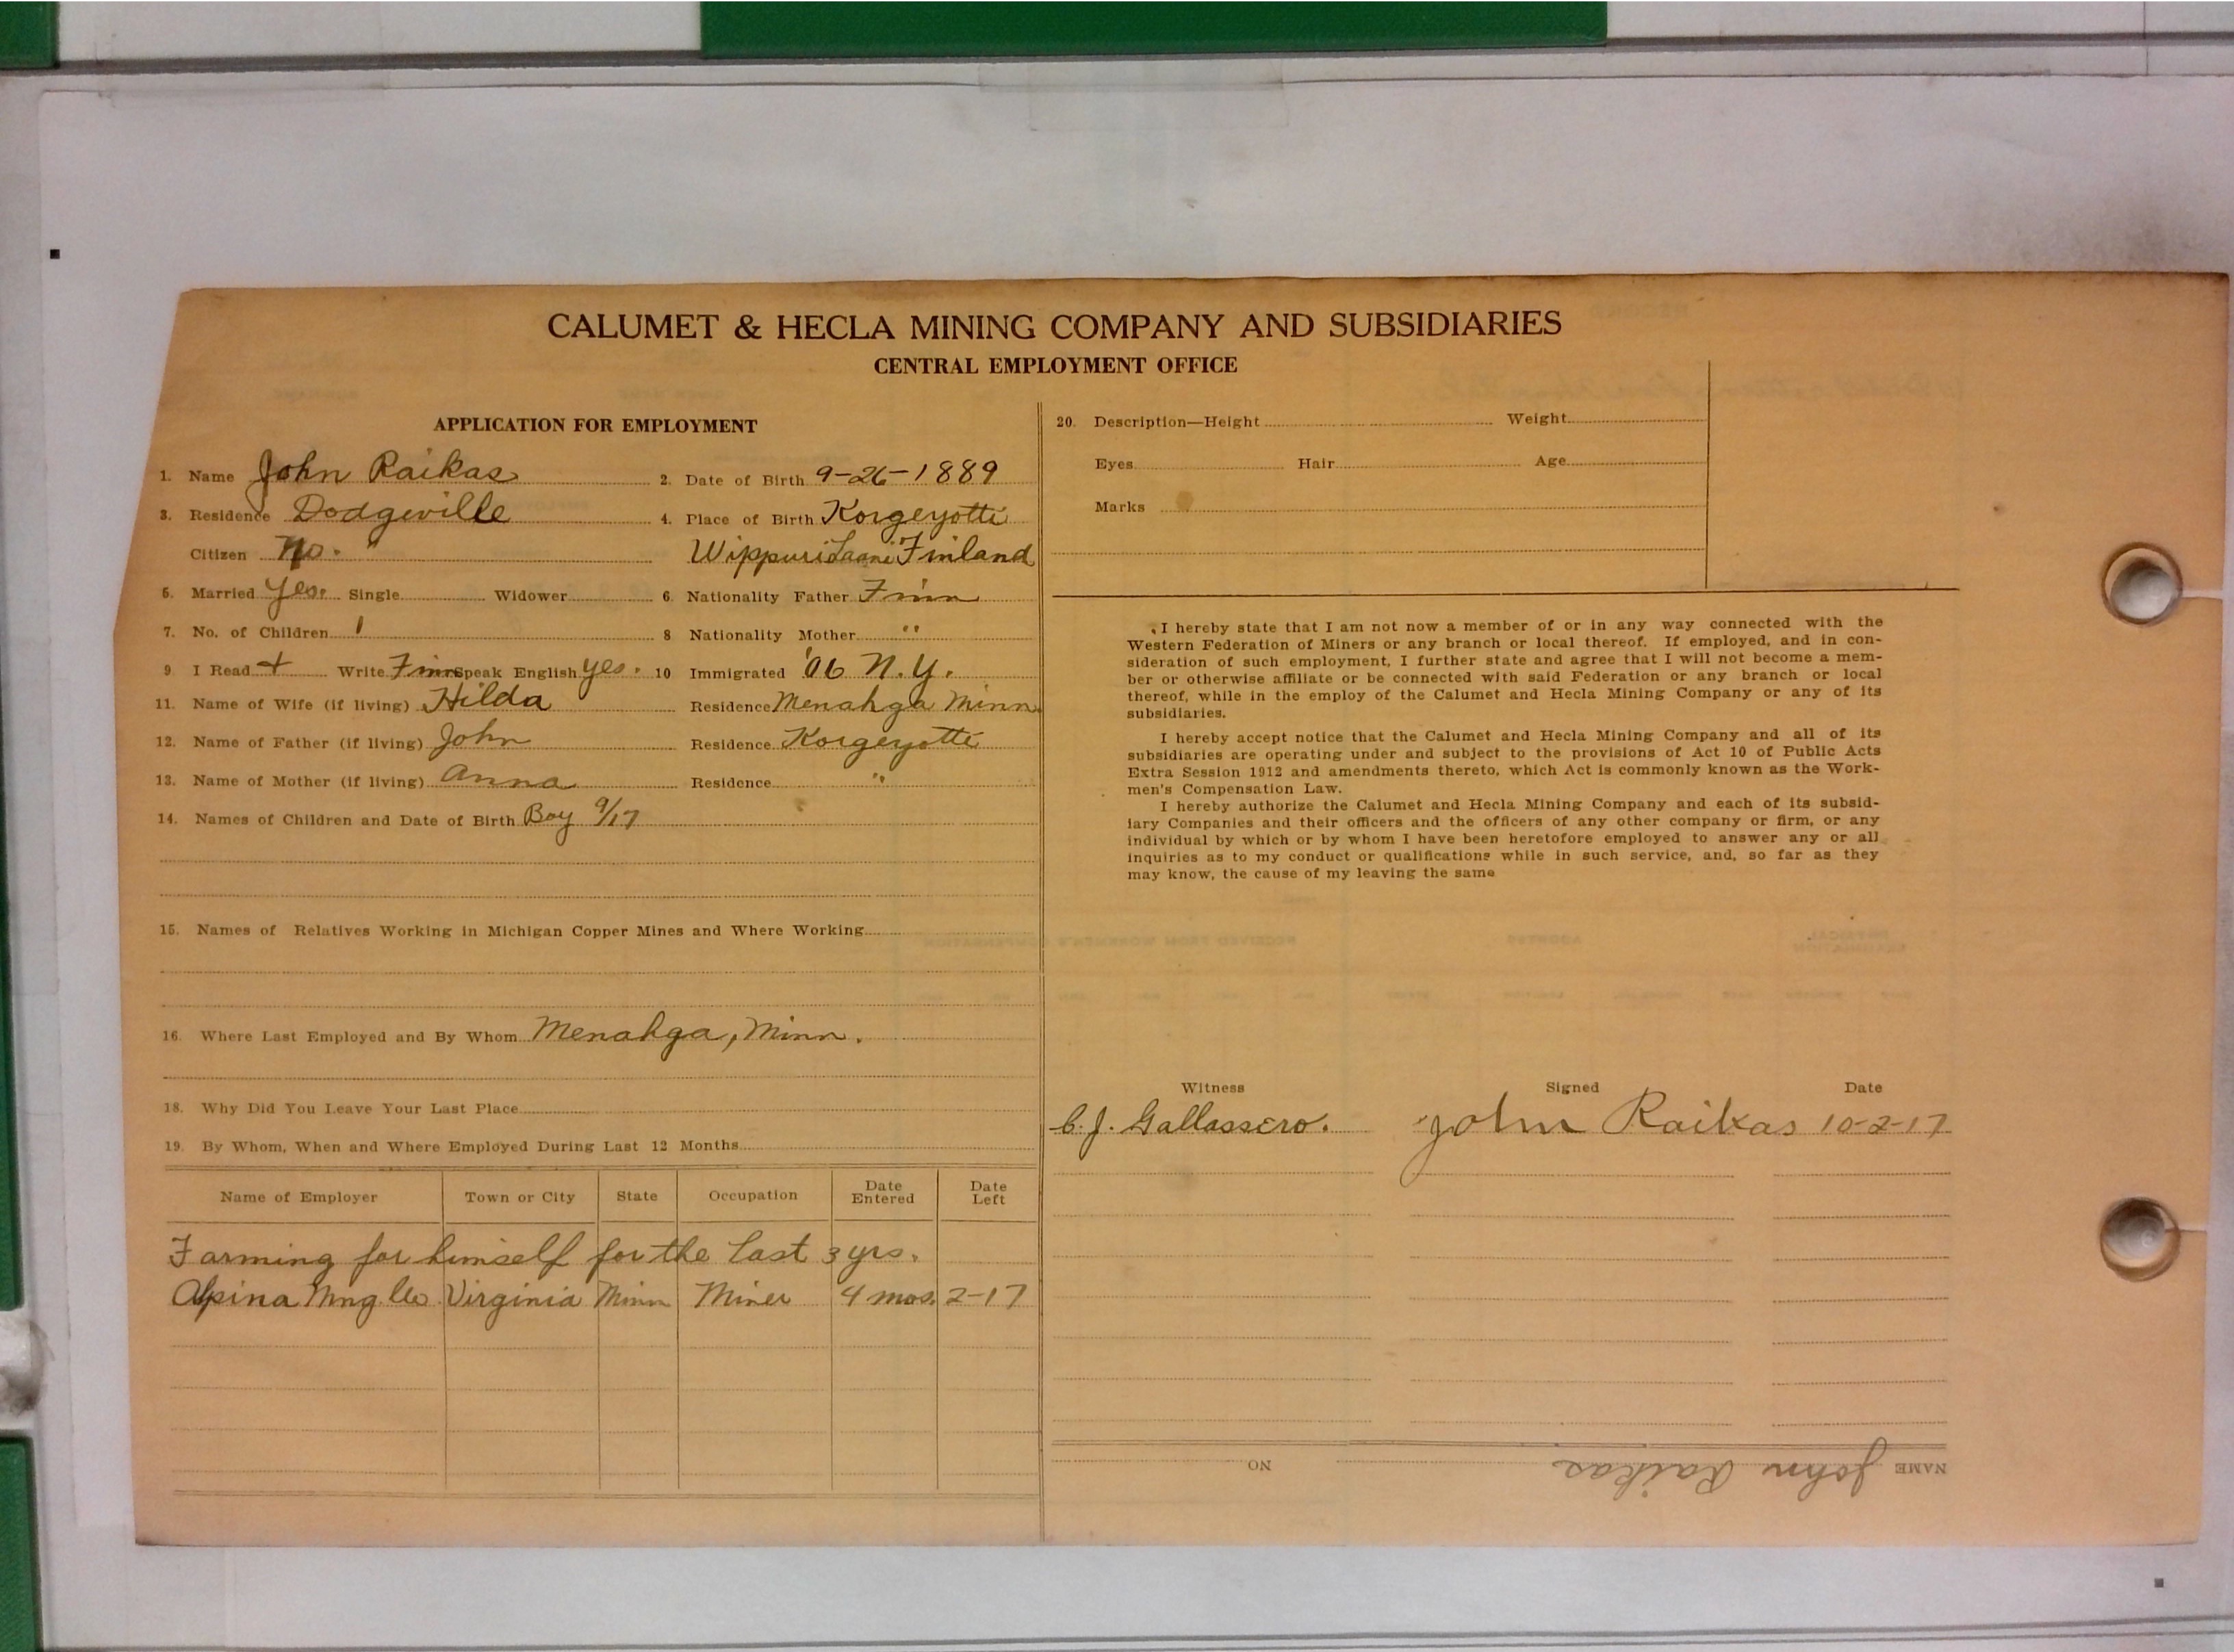 CALUMET & HECLA MINING COMPANY AND SUBSIDIARIES
CENTRAL EMPLOYMENT OFFICE
APPLICATION FOR EMPLOYMENT
1. Name John Raikas 2. Date of Birth 9-26-1889
3. Residence Dodgeville 4. Place of Birth Korgeyotti
Citizen No. Wippuri Laani Finland
5. Married Yes. Single Widower 6. Nationality Father Finn
7. No. of Children 1 8 Nationality Mother "
9. I Read + Write Finn Speak English yes. 10 Immigrated '06 N.Y.
11. Name of Wife (if living) Hilda Residence Menahga Minn.
12. Name of Father (if living) John Residence Korgeyotti
13. Name of Mother (if living) Anna Residence "
14. Names of Children and Date of Birth Boy 9/17
15. Names of Relatives Working in Michigan Copper Mines and Where Working
16. Where Last Employed and By Whom Menahga, Minn.
18. Why Did You Leave Your Last Place
19. By Whom, When and Where Employed During Last 12 Months
Name of Employer Town or City State Occupation Date Entered Date Left
Farming for himself for the last 3 yrs.
Alpina Mng Co Virginia Minn Miner 4 mos. 2-17
20. Description—Height Weight
Eyes Hair Age
Marks
I hereby state that I am not now a member of or in any way connected with the
Western Federation of Miners or any branch or local thereof. If employed, and in con-
sideration of such employment, I further state and agree that I will not become a mem-
ber or otherwise affiliate or be connected with said Federation or any branch or local
thereof, while in the employ of the Calumet and Hecla Mining Company or any of its
subsidiaries.
I hereby accept notice that the Calumet and Hecla Mining Company and all of its
subsidiaries are operating under and subject to the provisions of Act 10 of Public Acts
Extra Session 1912 and amendments thereto, which Act is commonly known as the Work-
men's Compensation Law.
I hereby authorize the Calumet and Hecla Mining Company and each of its subsid-
iary Companies and their officers and the officers of any other company or firm, or any
individual by which or by whom I have been heretofore employed to answer any or all
inquiries as to my conduct or qualifications while in such service, and, so far as they
may know, the cause of my leaving the same
Witness Signed Date
C. J. Gallassero. John Raikas 10-2-17
NAME John Raikas NO